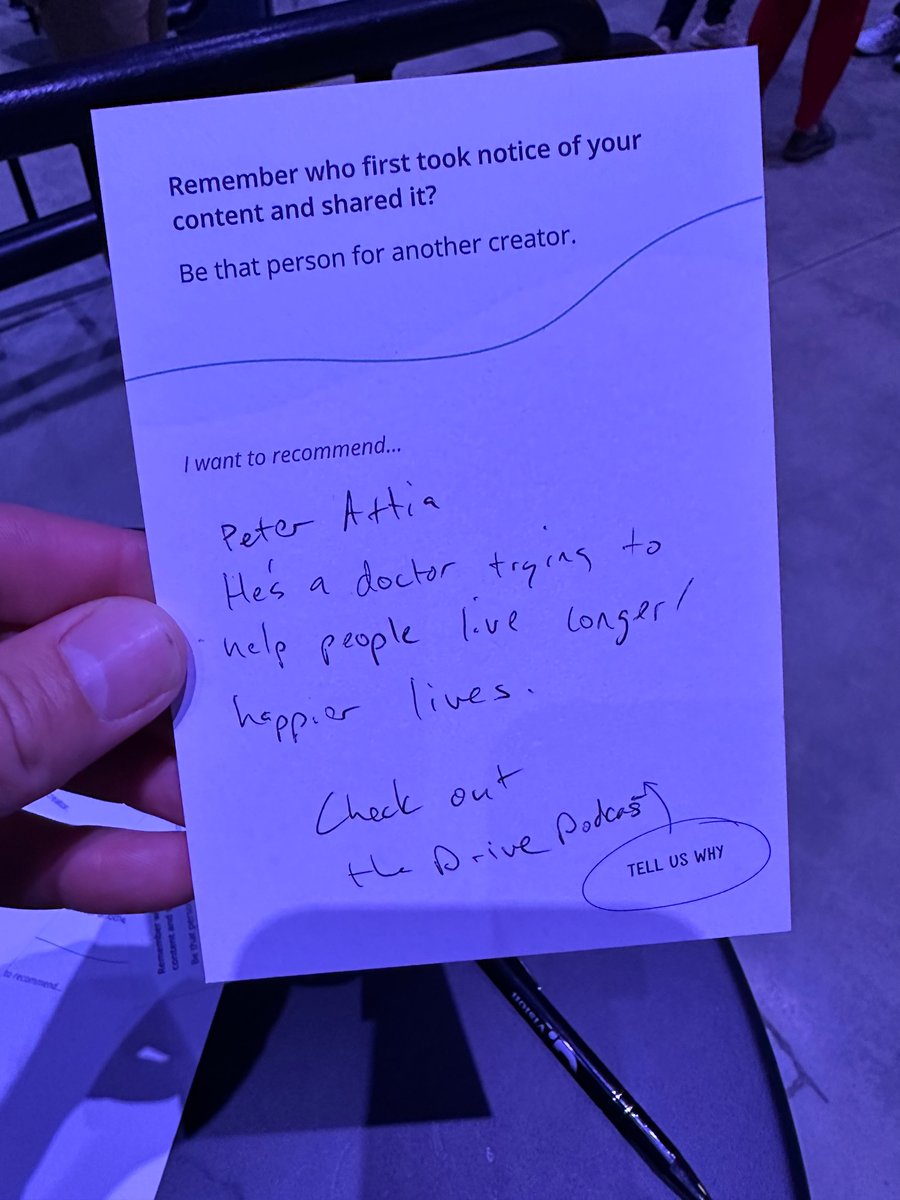 Remember who first took notice of your
content and shared it?
Be that person for another creator.
I want to recommend...
Peter Attia
He's a doctor trying to
help people live longer/
happier lives.
Check out
the Drive Podcast
TELL US WHY
Remember w
content and
Be that perso
to recommend...
VISION